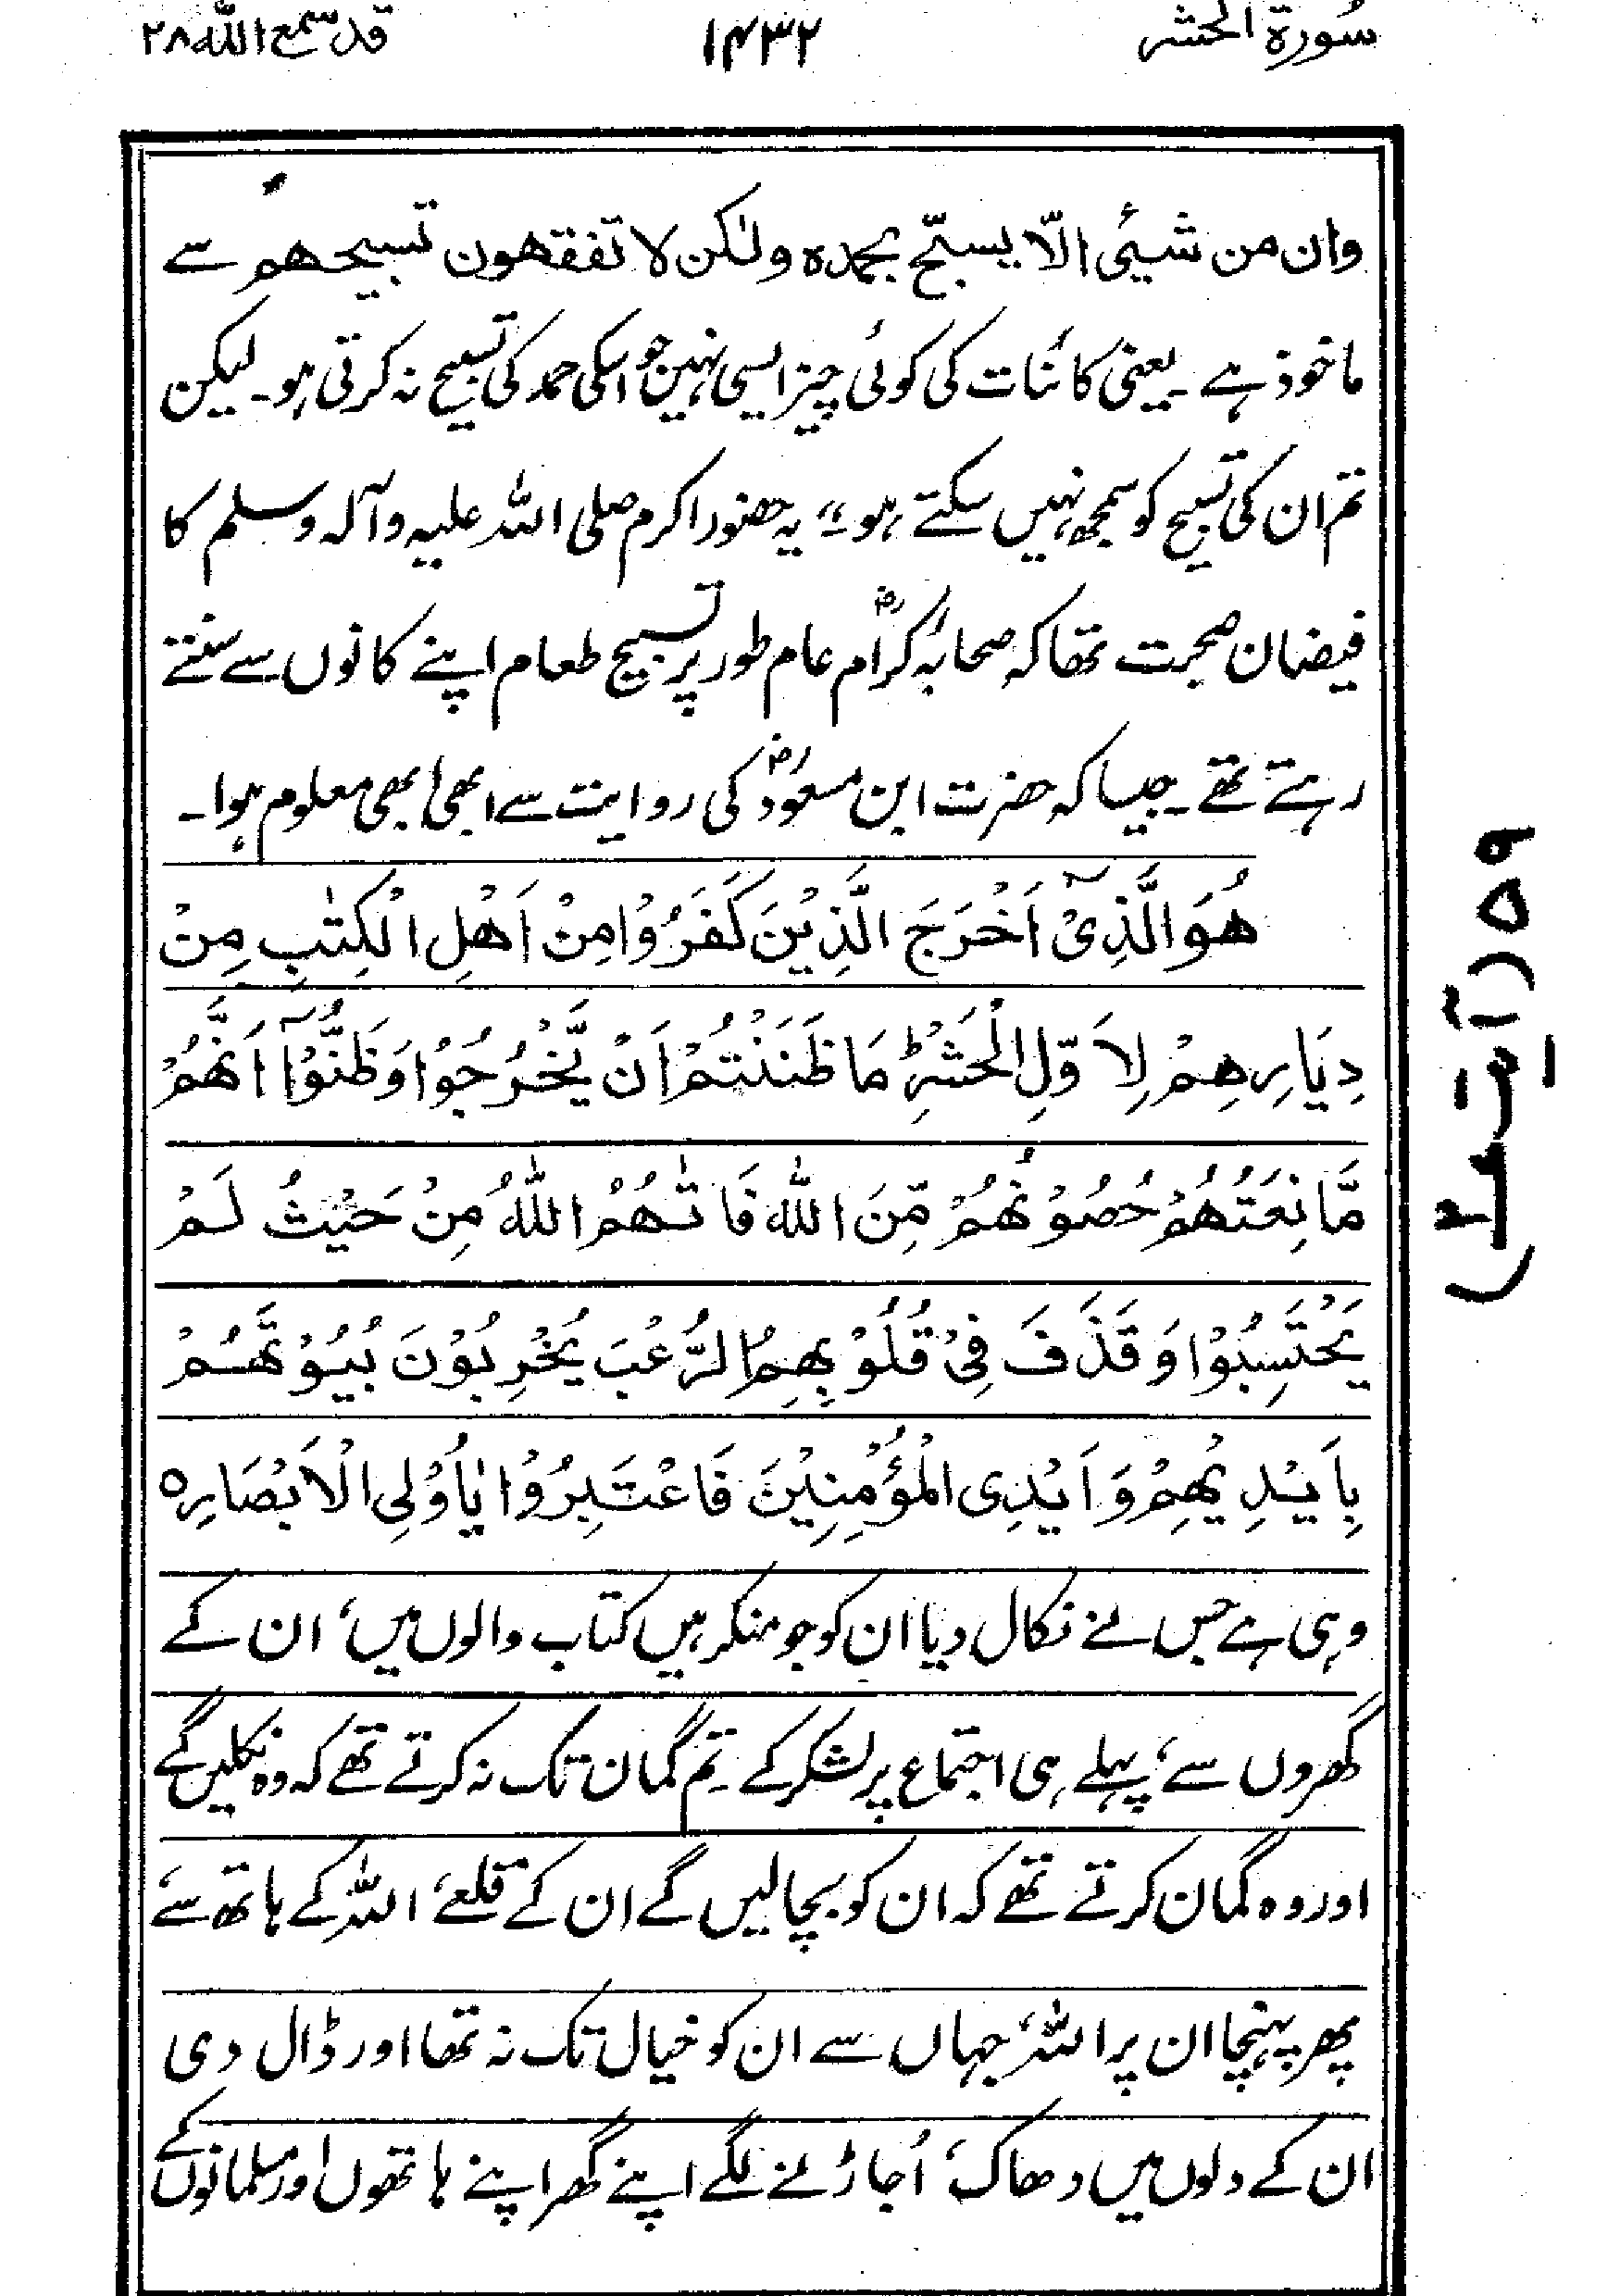 سورة الحشر ۱۴۳۲ قد سمع اللہ ۲۸
وان من شیئی الّا یسبّح بحمدہ ولٰکن لا تفقھون تسبیحھم سے
ماخوذ ہے۔ یعنی کائنات کی کوئی چیز ایسی نہیں جو اسکی حمد کی تسبیح نہ کرتی ہو۔ لیکن
تم ان کی تسبیح کو سمجھ نہیں سکتے ہو۔“ یہ حضور اکرم صلی اللہ علیہ وآلہ وسلم کا
فیضان صحبت تھا کہ صحابہ کرامؓ عام طور پر تسبیح طعام اپنے کانوں سے سنتے
رہتے تھے۔ جیسا کہ حضرت ابن مسعودؓ کی روایت سے ابھی ابھی معلوم ہوا۔
ھُوَ الَّذِیْٓ اَخْرَجَ الَّذِیْنَ کَفَرُوْا مِنْ اَھْلِ الْکِتٰبِ مِنْ
دِیَارِھِمْ لِاَوَّلِ الْحَشْرِؕ مَا ظَنَنْتُمْ اَنْ یَّخْرُجُوْا وَظَنُّوْٓا اَنَّھُمْ
مَّانِعَتُھُمْ حُصُوْنُھُمْ مِّنَ اللّٰہِ فَاَتٰىھُمُ اللّٰہُ مِنْ حَیْثُ لَمْ
یَحْتَسِبُوْا وَقَذَفَ فِیْ قُلُوْبِھِمُ الرُّعْبَ یُخْرِبُوْنَ بُیُوْتَھُمْ
بِاَیْدِیْھِمْ وَاَیْدِی الْمُؤْمِنِیْنَ فَاعْتَبِرُوْا یٰٓاُولِی الْاَبْصَارِ ہ
وہی ہے جس نے نکال دیا ان کو جو منکر ہیں کتاب والوں میں، ان کے
گھروں سے، پہلے ہی اجتماع پر لشکر کے۔ تم گمان تک نہ کرتے تھے کہ وہ نکلیں گے
اور وہ گمان کرتے تھے کہ ان کو بچالیں گے ان کے قلعے، اللہ کے ہاتھ سے،
پھر پہنچا ان پر اللہ، جہاں سے ان کو خیال تک نہ تھا اور ڈال دی
ان کے دلوں میں دھاک، اُجاڑنے لگے اپنے گھر اپنے ہاتھوں اور مسلمانوں کے
۵۹ (آیت ۲)